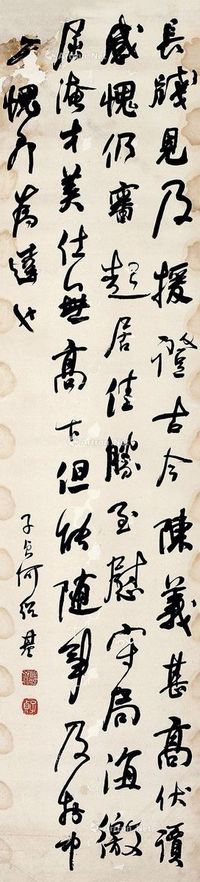 長牋見及援證古今陳義甚高伏讀
感愧仍審起居佳勝至慰守局海徼
屈淹才美仕無高下但能隨事及物中
愧即為達也
子貞何紹基